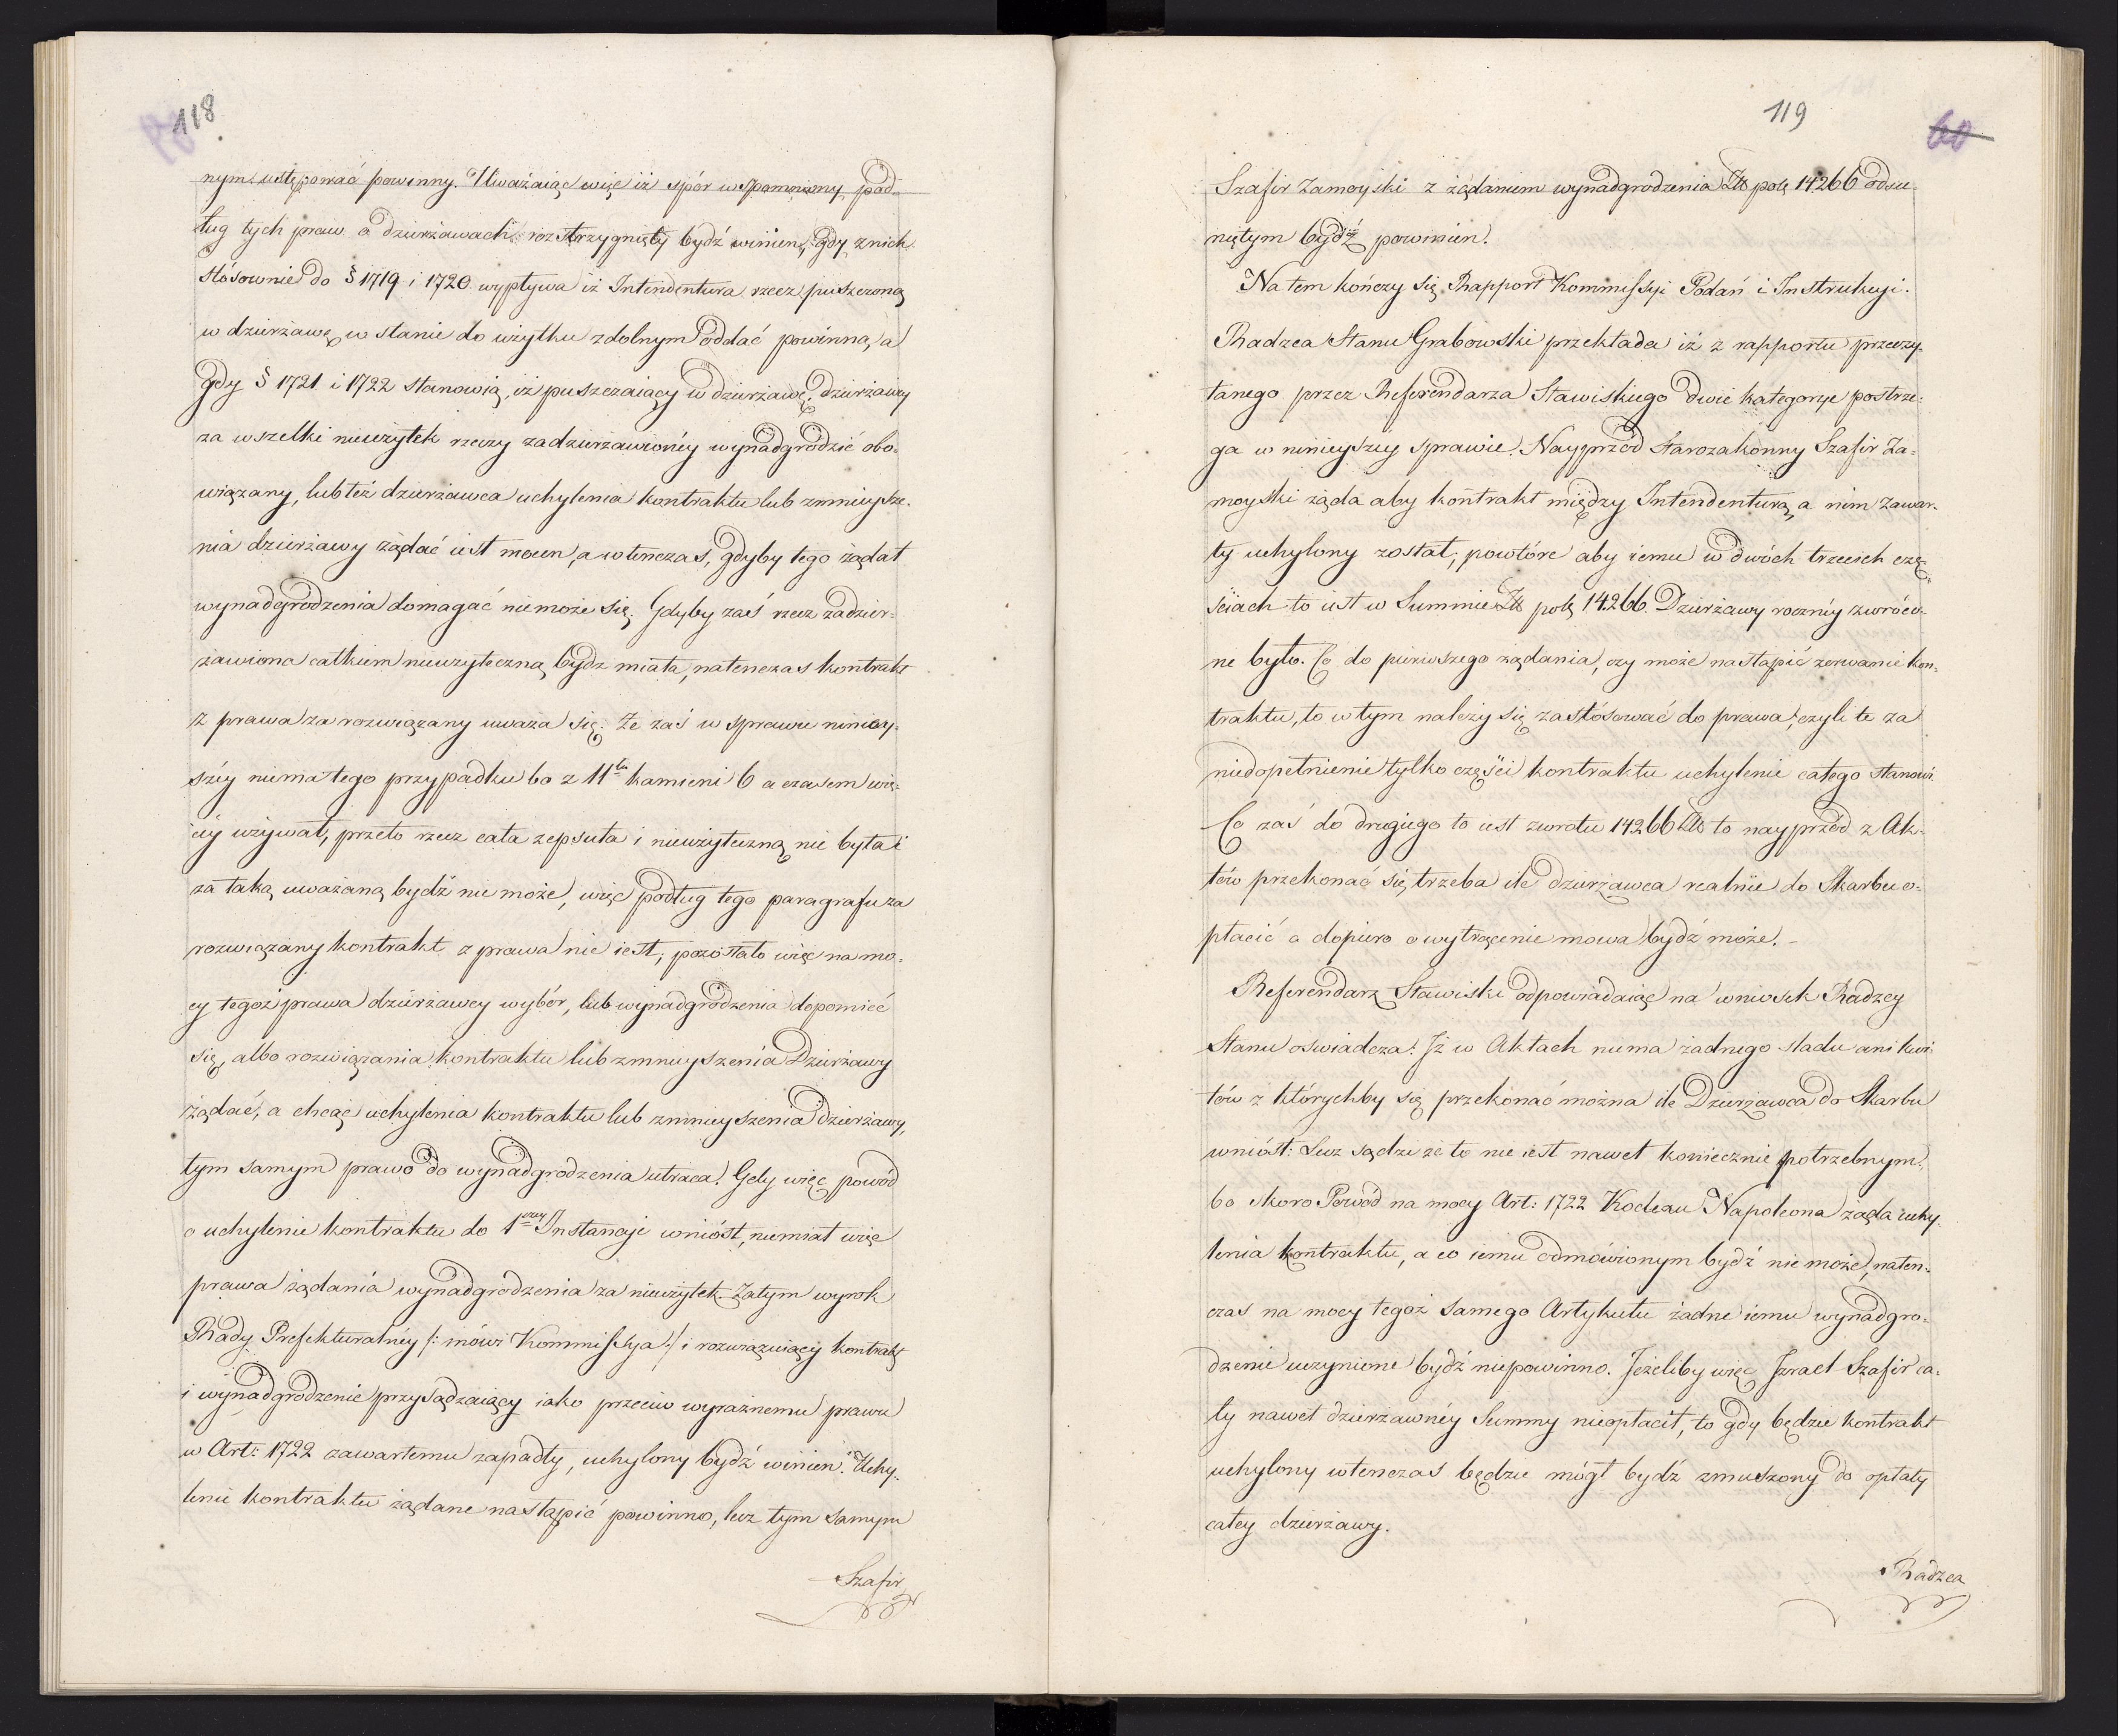 118
nym ustępować powinny. Uważaiąc więc iż spór wspomniony pod-
ług tych praw o dzierżawach rozstrzygnięty bydź winien, gdy z nich
stósownie do § 1719 i 1720 wypływa iż Intendentura rzecz puszczoną
w dzierżawę w stanie do użytku zdolnym oddać powinna, a
gdy § 1721 i 1722 stanowią, iż puszczaiący w dzierżawę, dzierżawcy
za wszelki nieużytek rzeczy zadzierżawionéy wynadgrodzić obo-
wiązany, lub też dzierżawca uchylenia kontraktu lub zmnieysze-
nia dzierżawy żądać iest mocen, a wtenczas, gdyby tego żądał
wynadgrodzenia domagać niemoże się. Gdyby zaś rzecz zadzier-
żawiona całkiem nieużyteczną bydz miała, natenczas kontrakt
z prawa za rozwiązany uważa się. Że zaś w sprawie niniey-
széy niema tego przypadku bo z 11tu kamieni 6 a czasem wię-
céy używał, przeto rzecz cała zepsuta i nieużyteczną nie była i
za taką uważaną bydź nie może, więc podług tego paragrafu za
rozwiązany kontrakt z prawa nie iest; pozostało więc na mo-
cy tegoż prawa dzierżawcy wybór, lub wynadgrodzenia dopomieć
się, albo rozwiązania kontraktu lub zmnieyszenia Dzierżawy
żądać, a chcąc uchylenia kontraktu lub zmnieyszenia dzierżawy,
tym samym prawo do wynadgrodzenia utraca. Gdy więc powód
o uchylenie kontraktu do 1wszey Instancyi wniósł, niemiał więc
prawa żądania wynadgrodzenia za nieużytek. Zatym wyrok
Rady Prefekturalnéy /: mówi Kommissya :/ i rozwiązuiący kontrakt
i wynadgrodzenie przysądzaiący iako przeciw wyraźnemu prawu
w Art: 1722 zawartemu zapadły, uchylony bydź winien. Uchy-
lenie kontraktu żądane nastąpić powinno, lecz tym samym
Szafir
119
60
Szafir Zamoyski z żądaniem wynadgrodzenia Zło polş 14266 odsu-
niętym bydź powinien.
Na tem kończy się Rapport Kommissyi Podań i Instrukcyi.
Radzca Stanu Grabowski przekłada iż z rapportu przeczy-
tanego przez Referendarza Stawiskiego dwie kategorye postrze-
ga w ninieyszey sprawie. Nayprzód starozakonny Szafir Za-
moyski żąda aby kontrakt między Intendenturą, a nim zawar-
ty uchylony został; powtóre aby iemu w dwóch trzecich czę-
ściach to iest w Summie Zło polş 14266. Dzierżawy rocznéy zwróco-
ne było. Co do pierwszego żądania, czy może nastąpić zerwanie kon-
traktu, to w tym należy się zastósować do prawa, czyli te za
niedopełnienie tylko części kontraktu uchylenie całego stanowi.
Co zaś do drugiego to iest zwrotu 14266 Zło to nayprzód z Ak-
tów przekonać się trzeba ile dzierżawca realnie do Skarbu o-
płacić a dopiero o wytrącenie mowa bydź może. –
Referendarz Stawiski odpowiadaiąc na wniosek Radzcy
Stanu oświadcza: Iż w Aktach niema żadnego śladu ani kwi-
tów z którychby się przekonać można ile Dzierżawca do Skarbu
wniósł: Lecz sądzi że to nie iest nawet koniecznie potrzebnym,
bo skoro Powód na mocy Art: 1722 Kodexu Napoleona żąda uchy-
lenia kontraktu, a co iemu odmówionym bydź nie może, naten-
czas na mocy tegoż samego Artykułu żadne iemu wynadgro-
dzenie uczynione bydź niepowinno. Jeżeliby więc Izrael Szafir ca-
ły nawet dzierżawnéy Summy nieopłacił, to gdy będzie kontrakt
uchylony wtenczas będzie mógł bydź zmuszony do opłaty
całey dzierżawy.
Radzca